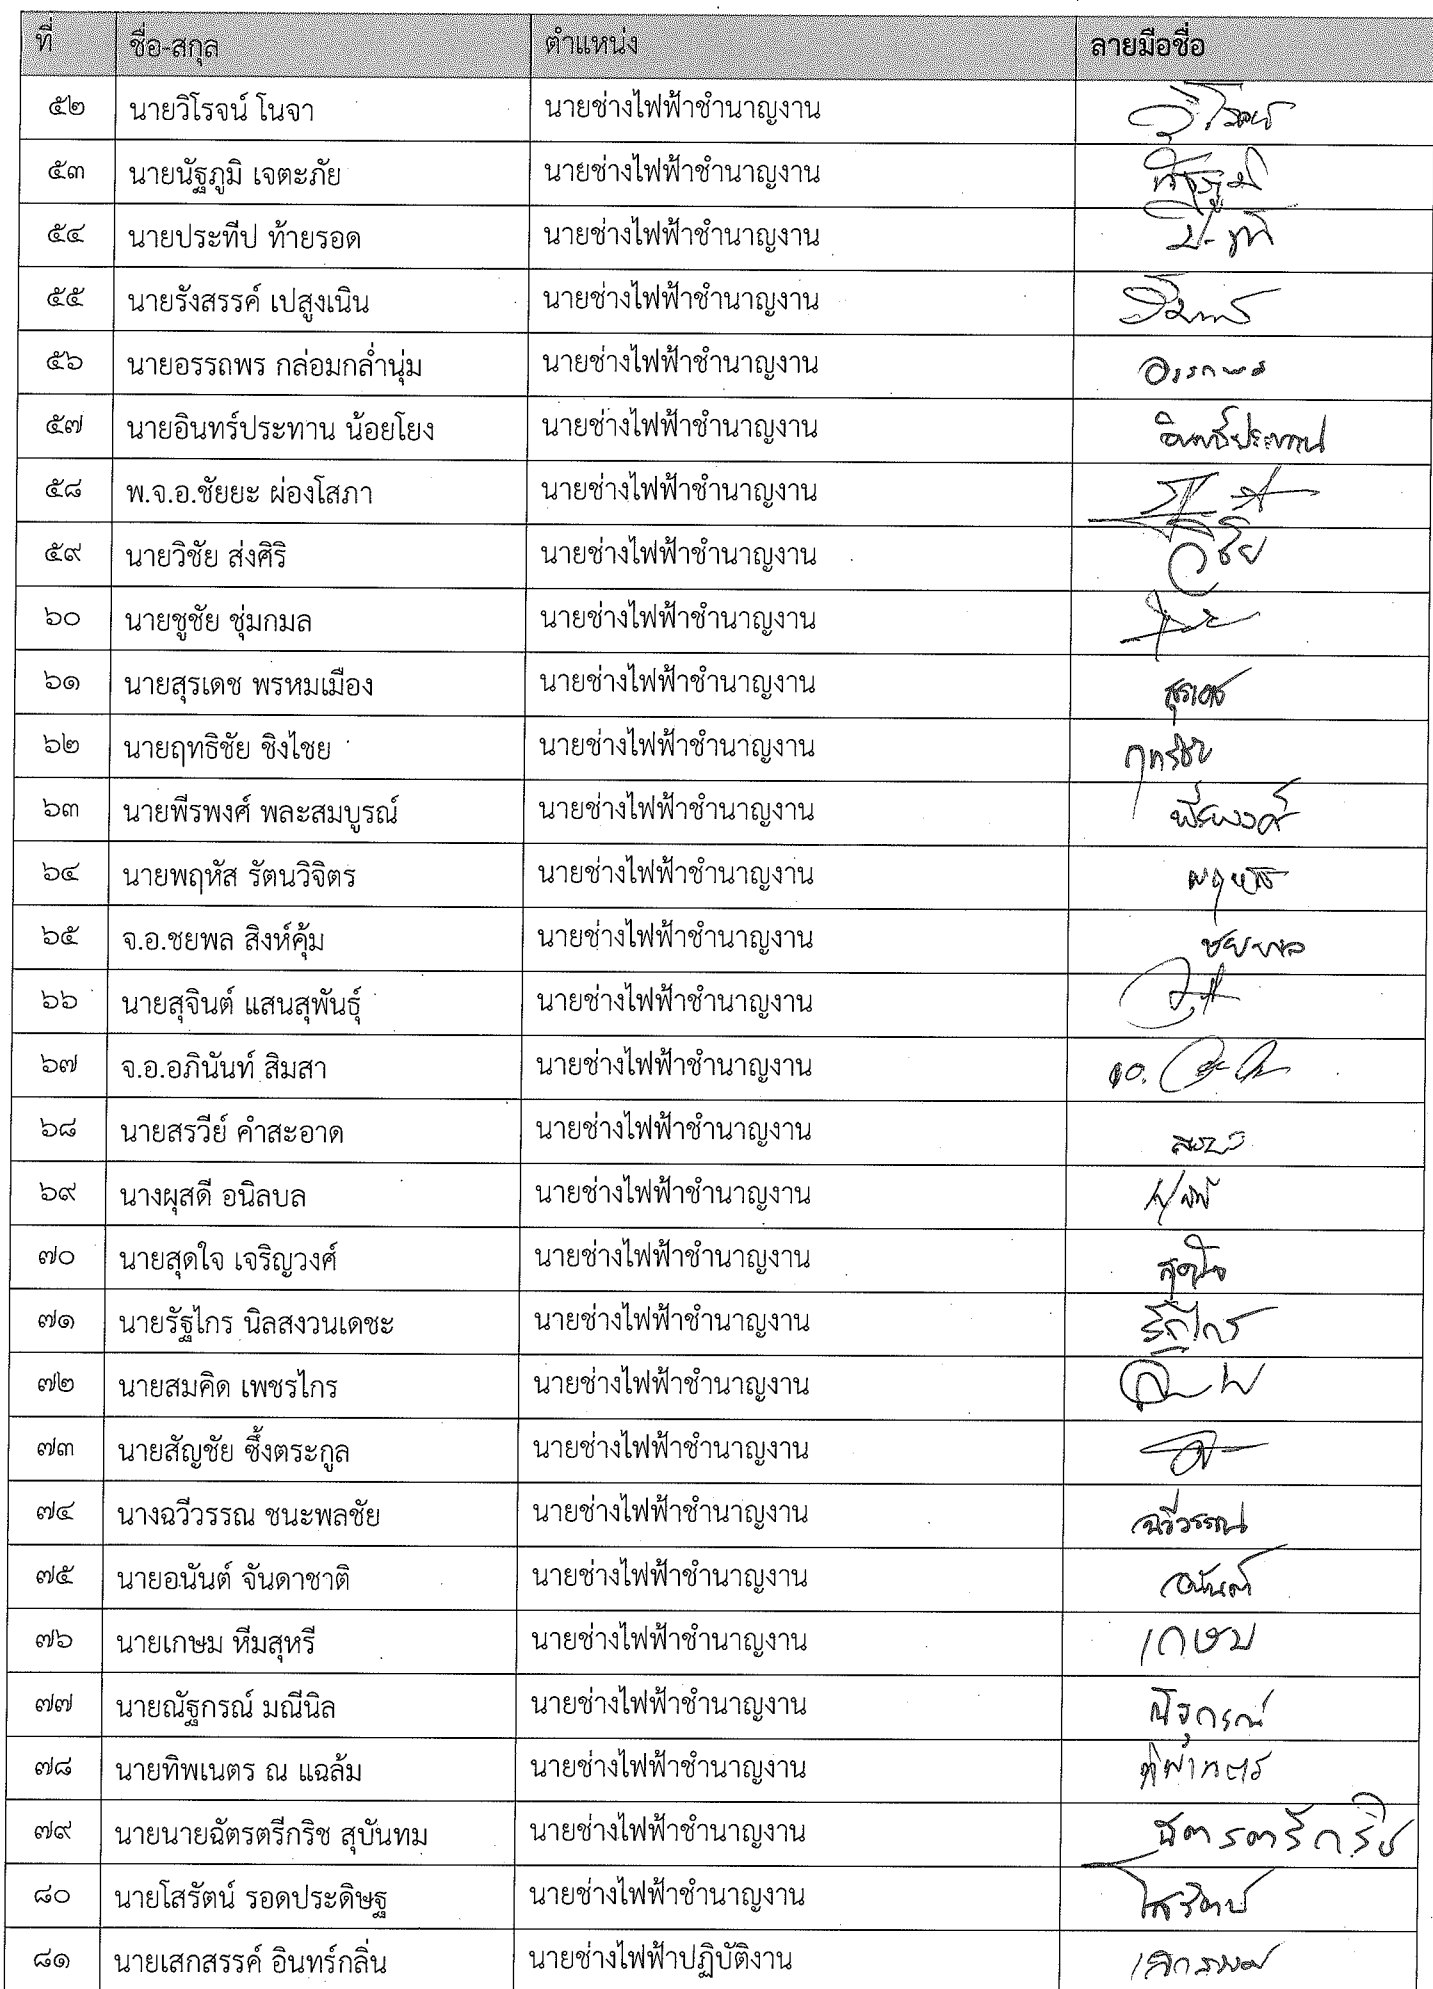 ที่ ชื่อ-สกุล ตำแหน่ง ลายมือชื่อ
๕๒ นายวิโรจน์ โนจา นายช่างไฟฟ้าชำนาญงาน วิโรจน์
๕๓ นายนัฐภูมิ เจตะภัย นายช่างไฟฟ้าชำนาญงาน นัฐภูมิ
๕๔ นายประทีป ท้ายรอด นายช่างไฟฟ้าชำนาญงาน
๕๕ นายรังสรรค์ เปสูงเนิน นายช่างไฟฟ้าชำนาญงาน
๕๖ นายอรรถพร กล่อมกล่ำนุ่ม นายช่างไฟฟ้าชำนาญงาน อรรถพร
๕๗ นายอินทร์ประทาน น้อยโยง นายช่างไฟฟ้าชำนาญงาน อินทร์ประทาน
๕๘ พ.จ.อ.ชัยยะ ผ่องโสภา นายช่างไฟฟ้าชำนาญงาน
๕๙ นายวิชัย ส่งศิริ นายช่างไฟฟ้าชำนาญงาน วิชัย
๖๐ นายชูชัย ชุ่มกมล นายช่างไฟฟ้าชำนาญงาน
๖๑ นายสุรเดช พรหมเมือง นายช่างไฟฟ้าชำนาญงาน สุรเดช
๖๒ นายฤทธิชัย ชิงไชย นายช่างไฟฟ้าชำนาญงาน ฤทธิชัย
๖๓ นายพีรพงศ์ พละสมบูรณ์ นายช่างไฟฟ้าชำนาญงาน พีรพงศ์
๖๔ นายพฤหัส รัตนวิจิตร นายช่างไฟฟ้าชำนาญงาน พฤหัส
๖๕ จ.อ.ชยพล สิงห์คุ้ม นายช่างไฟฟ้าชำนาญงาน ชยพล
๖๖ นายสุจินต์ แสนสุพันธุ์ นายช่างไฟฟ้าชำนาญงาน
๖๗ จ.อ.อภินันท์ สิมสา นายช่างไฟฟ้าชำนาญงาน
๖๘ นายสรวีย์ คำสะอาด นายช่างไฟฟ้าชำนาญงาน
๖๙ นางผุสดี อนิลบล นายช่างไฟฟ้าชำนาญงาน ผุสดี
๗๐ นายสุดใจ เจริญวงศ์ นายช่างไฟฟ้าชำนาญงาน สุดใจ
๗๑ นายรัฐไกร นิลสงวนเดชะ นายช่างไฟฟ้าชำนาญงาน รัฐไกร
๗๒ นายสมคิด เพชรไกร นายช่างไฟฟ้าชำนาญงาน
๗๓ นายสัญชัย ซึ้งตระกูล นายช่างไฟฟ้าชำนาญงาน
๗๔ นางฉวีวรรณ ชนะพลชัย นายช่างไฟฟ้าชำนาญงาน ฉวีวรรณ
๗๕ นายอนันต์ จันดาชาติ นายช่างไฟฟ้าชำนาญงาน อนันต์
๗๖ นายเกษม หีมสุหรี นายช่างไฟฟ้าชำนาญงาน เกษม
๗๗ นายณัฐกรณ์ มณีนิล นายช่างไฟฟ้าชำนาญงาน ณัฐกรณ์
๗๘ นายทิพเนตร ณ แฉล้ม นายช่างไฟฟ้าชำนาญงาน ทิพเนตร
๗๙ นายนายฉัตรตรีกริช สุบันทม นายช่างไฟฟ้าชำนาญงาน ฉัตรตรีกริช
๘๐ นายโสรัตน์ รอดประดิษฐ นายช่างไฟฟ้าชำนาญงาน โสรัตน์
๘๑ นายเสกสรรค์ อินทร์กลิ่น นายช่างไฟฟ้าปฏิบัติงาน เสกสรรค์